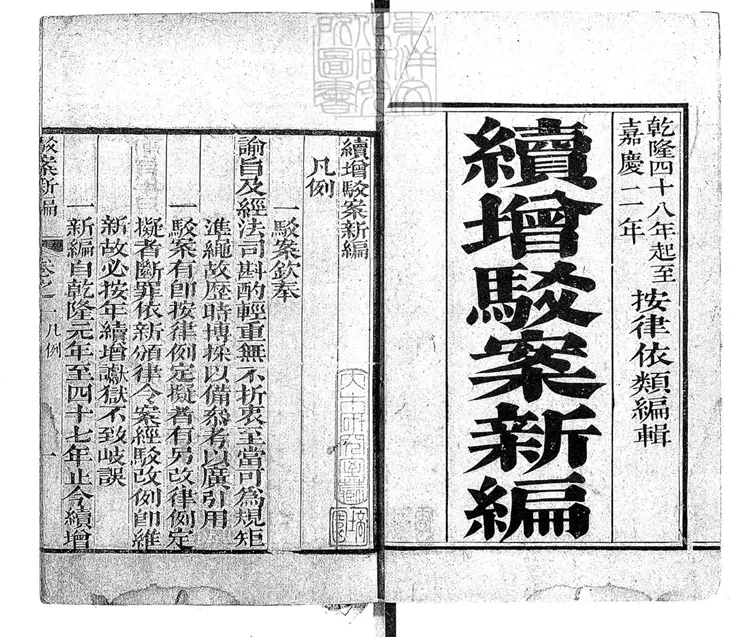 乾隆四十八年起至
嘉慶二年
按律依類編輯
續增駁案新編
續增駁案新編
凡例
一駁案欽奉
諭旨及經法司斟酌輕重無不折衷至當可為規矩
準繩故歷時博採以備叅考以廣引用
一駁案有卽按律例定擬者有另改律例定
擬者斷罪依新頒律令案經駁改例卽維
新故必按年續增讞獄不致歧誤
一新編自乾隆元年至四十七年止今續增
駁案新編
卷之一凡例
一